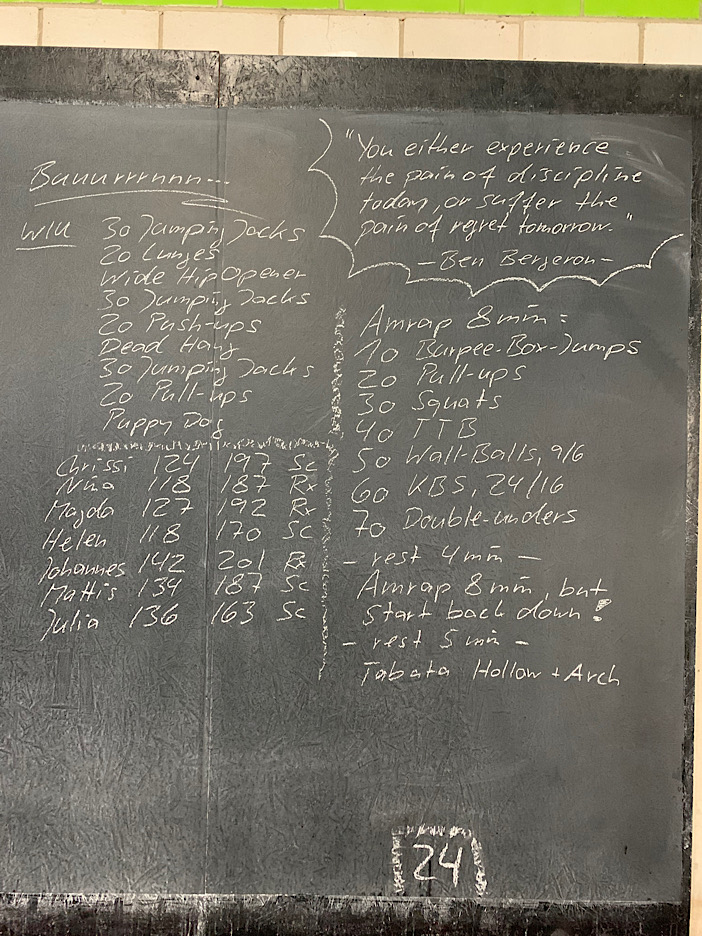 Buuurrrnnn...
WU 30 Jumping Jacks
20 Lunges
Wide Hip Opener
30 Jumping Jacks
20 Push-ups
Dead Hang
30 Jumping Jacks
20 Pull-ups
Puppy Dog
Chrissi 124 197 Sc
Nina 118 187 Rx
Magda 127 192 Rx
Helen 118 170 Sc
Johannes 142 201 Rx
Mattis 134 187 Sc
Julia 136 163 Sc
"You either experience
the pain of discipline
today, or suffer the
pain of regret tomorrow."
- Ben Bergeron -
Amrap 8min:
10 Burpee-Box-Jumps
20 Pull-ups
30 Squats
40 TTB
50 Wall-Balls, 9/6
60 KBS, 24/16
70 Double-unders
- rest 4min -
Amrap 8min, but
start back down!
- rest 5min -
Tabata Hollow + Arch
24